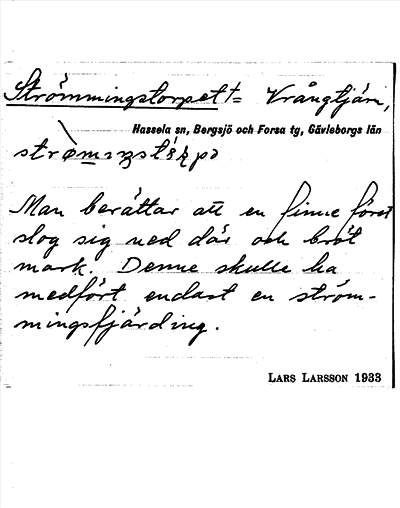 Strömmingstorpet = Vrångtjärn,
Hassela sn, Bergsjö och Forsa tg, Gävleborgs län
Man berättar att en finne först
slog sig ned där och bröt
mark. Denne skulle ha
medfört endast en ström-
mingsfjärding.
LARS LARSSON 1933